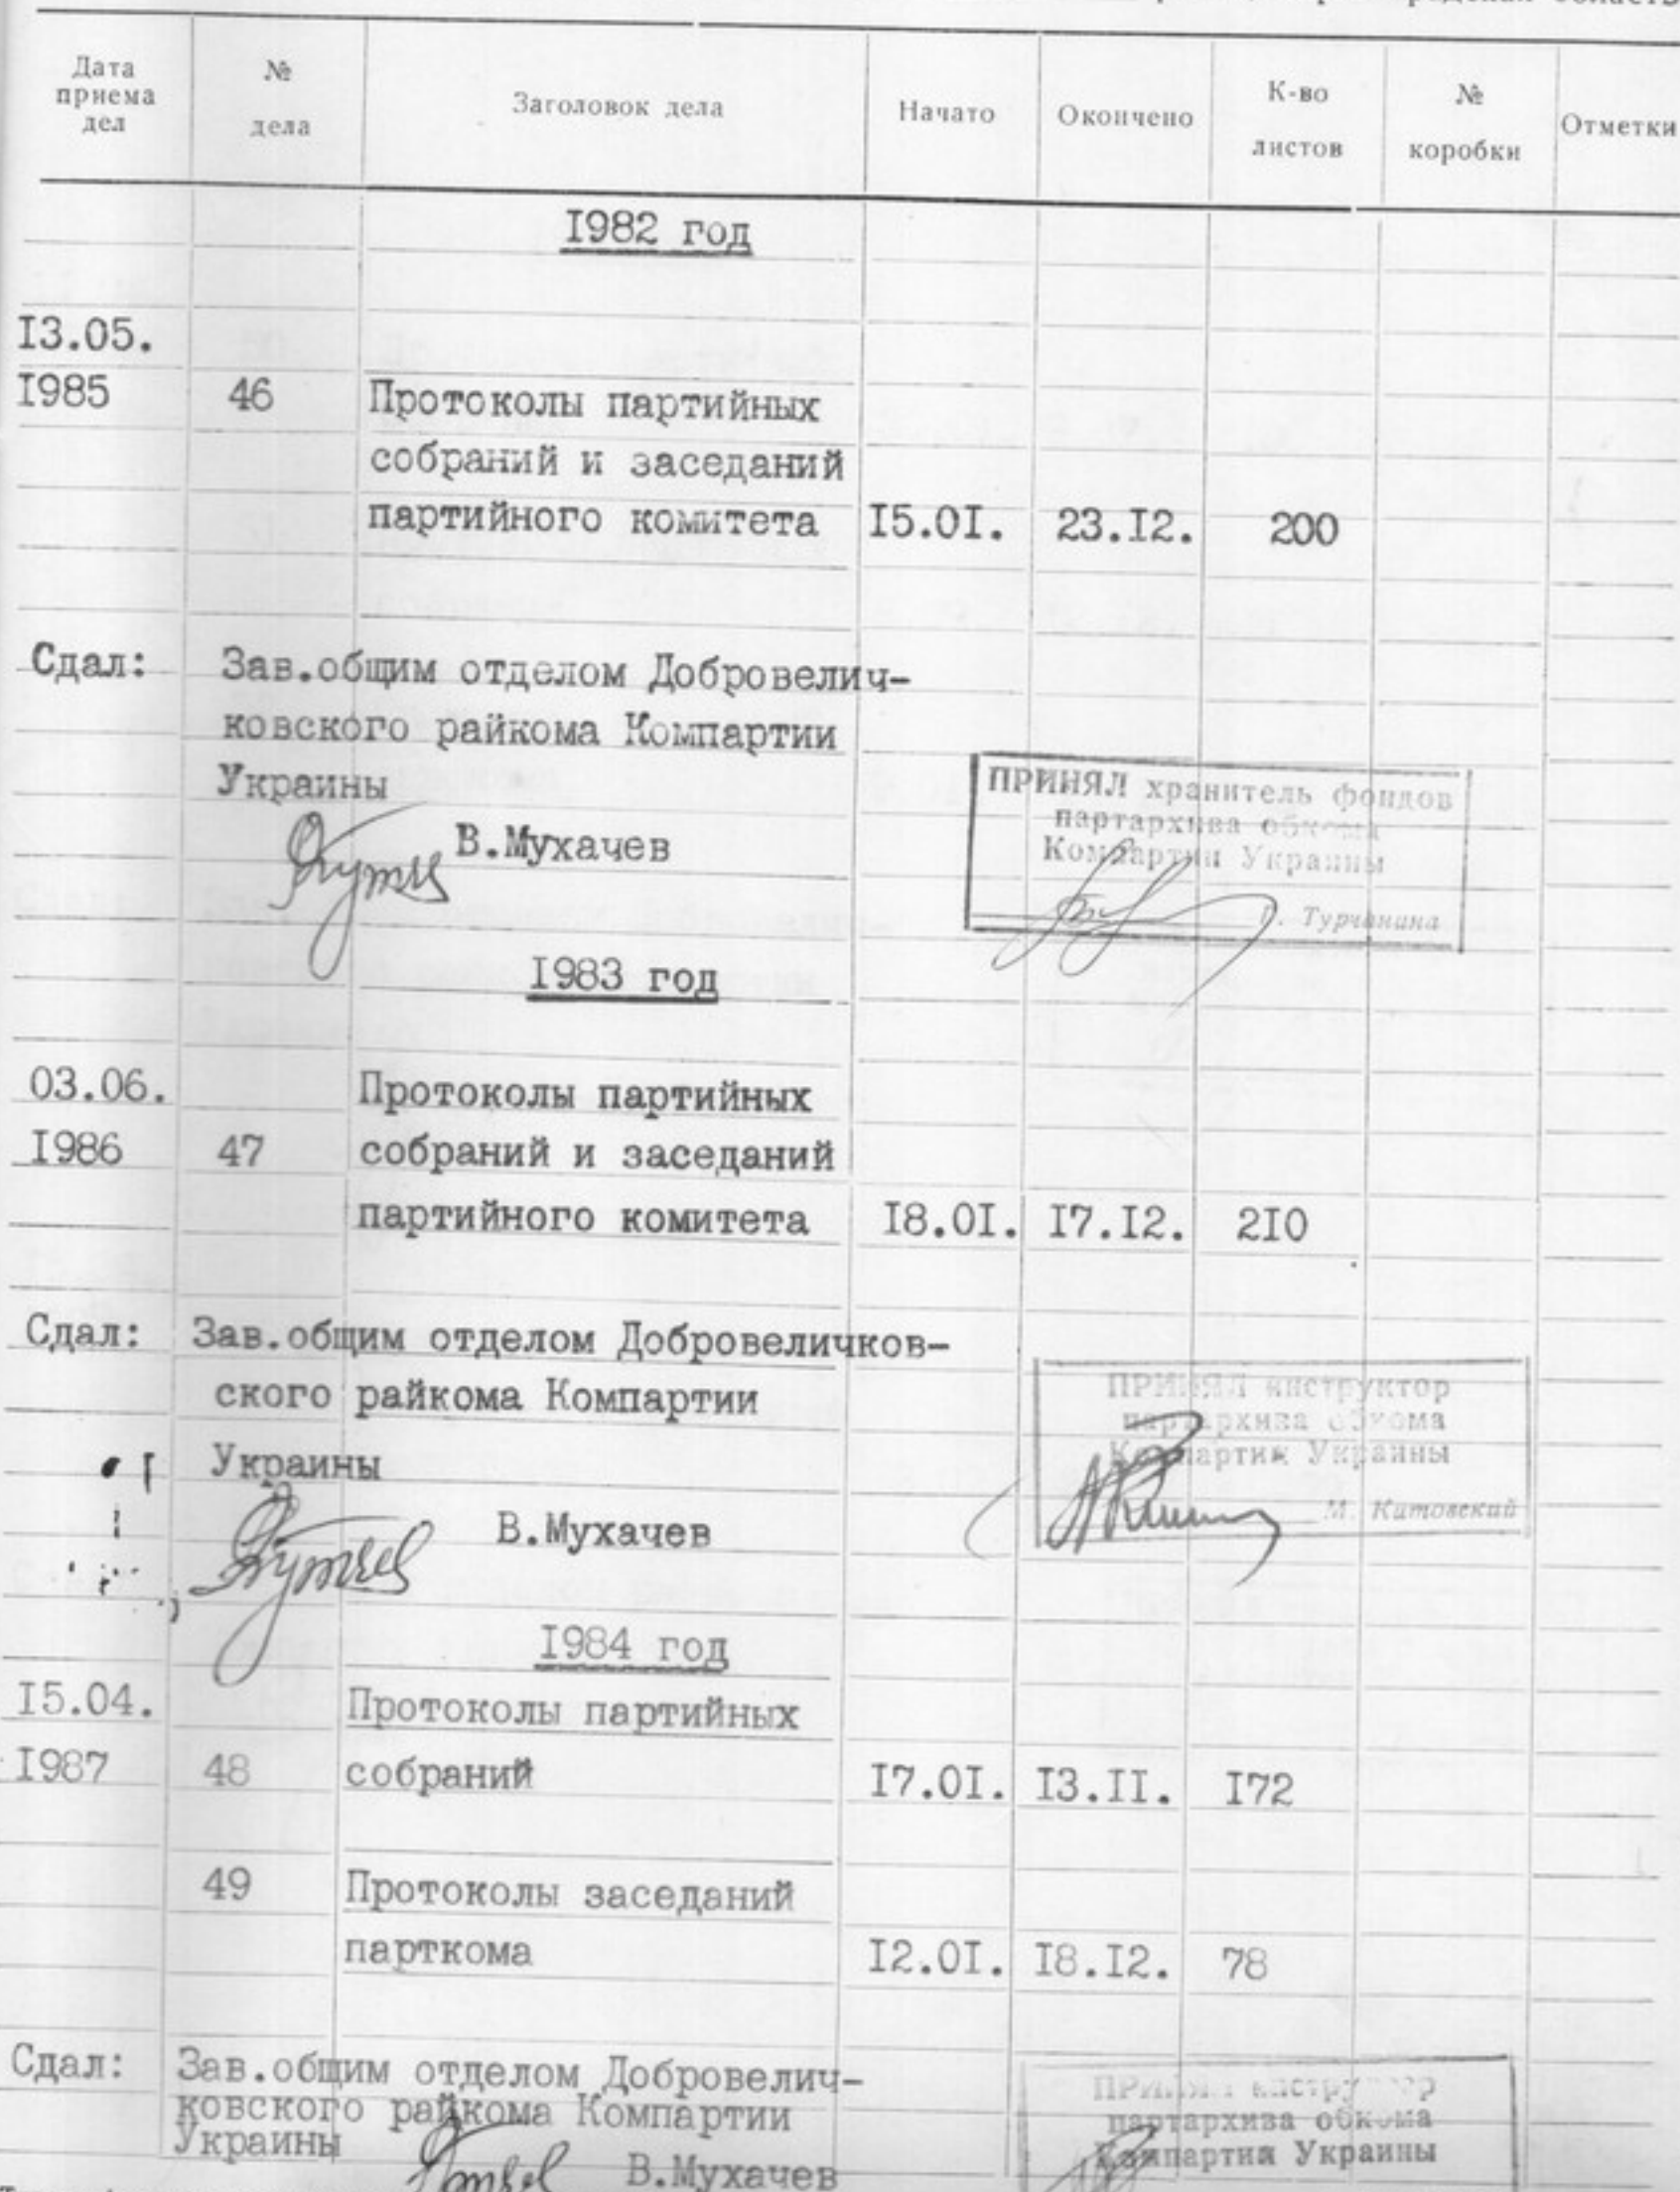 область
Дата приема дел № дела Заголовок дела Начато Окончено К-во листов № коробки Отметки
I982 год
I3.05.
I985 46 Протоколы партийных
собраний и заседаний
партийного комитета I5.0I. 23.I2. 200
Сдал: Зав.общим отделом Добровелич-
ковского райкома Компартии
Украины
В.Мухачев
ПРИНЯЛ хранитель фондов
партархива обкома
Компартии Украины
Турчанина
I983 год
03.06. Протоколы партийных
I986 47 собраний и заседаний
партийного комитета I8.0I. I7.I2. 2I0
Сдал: Зав.общим отделом Добровеличков-
ского райкома Компартии
Украины
В.Мухачев
ПРИНЯЛ инструктор
партархива обкома
Компартии Украины
М. Китовский
I984 год
I5.04. Протоколы партийных
I987 48 собраний I7.0I. I3.II. I72
49 Протоколы заседаний
парткома I2.0I. I8.I2. 78
Сдал: Зав.общим отделом Добровелич-
ковского райкома Компартии
Украины
В.Мухачев
ПРИНЯЛ инструктор
партархива обкома
Компартии Украины